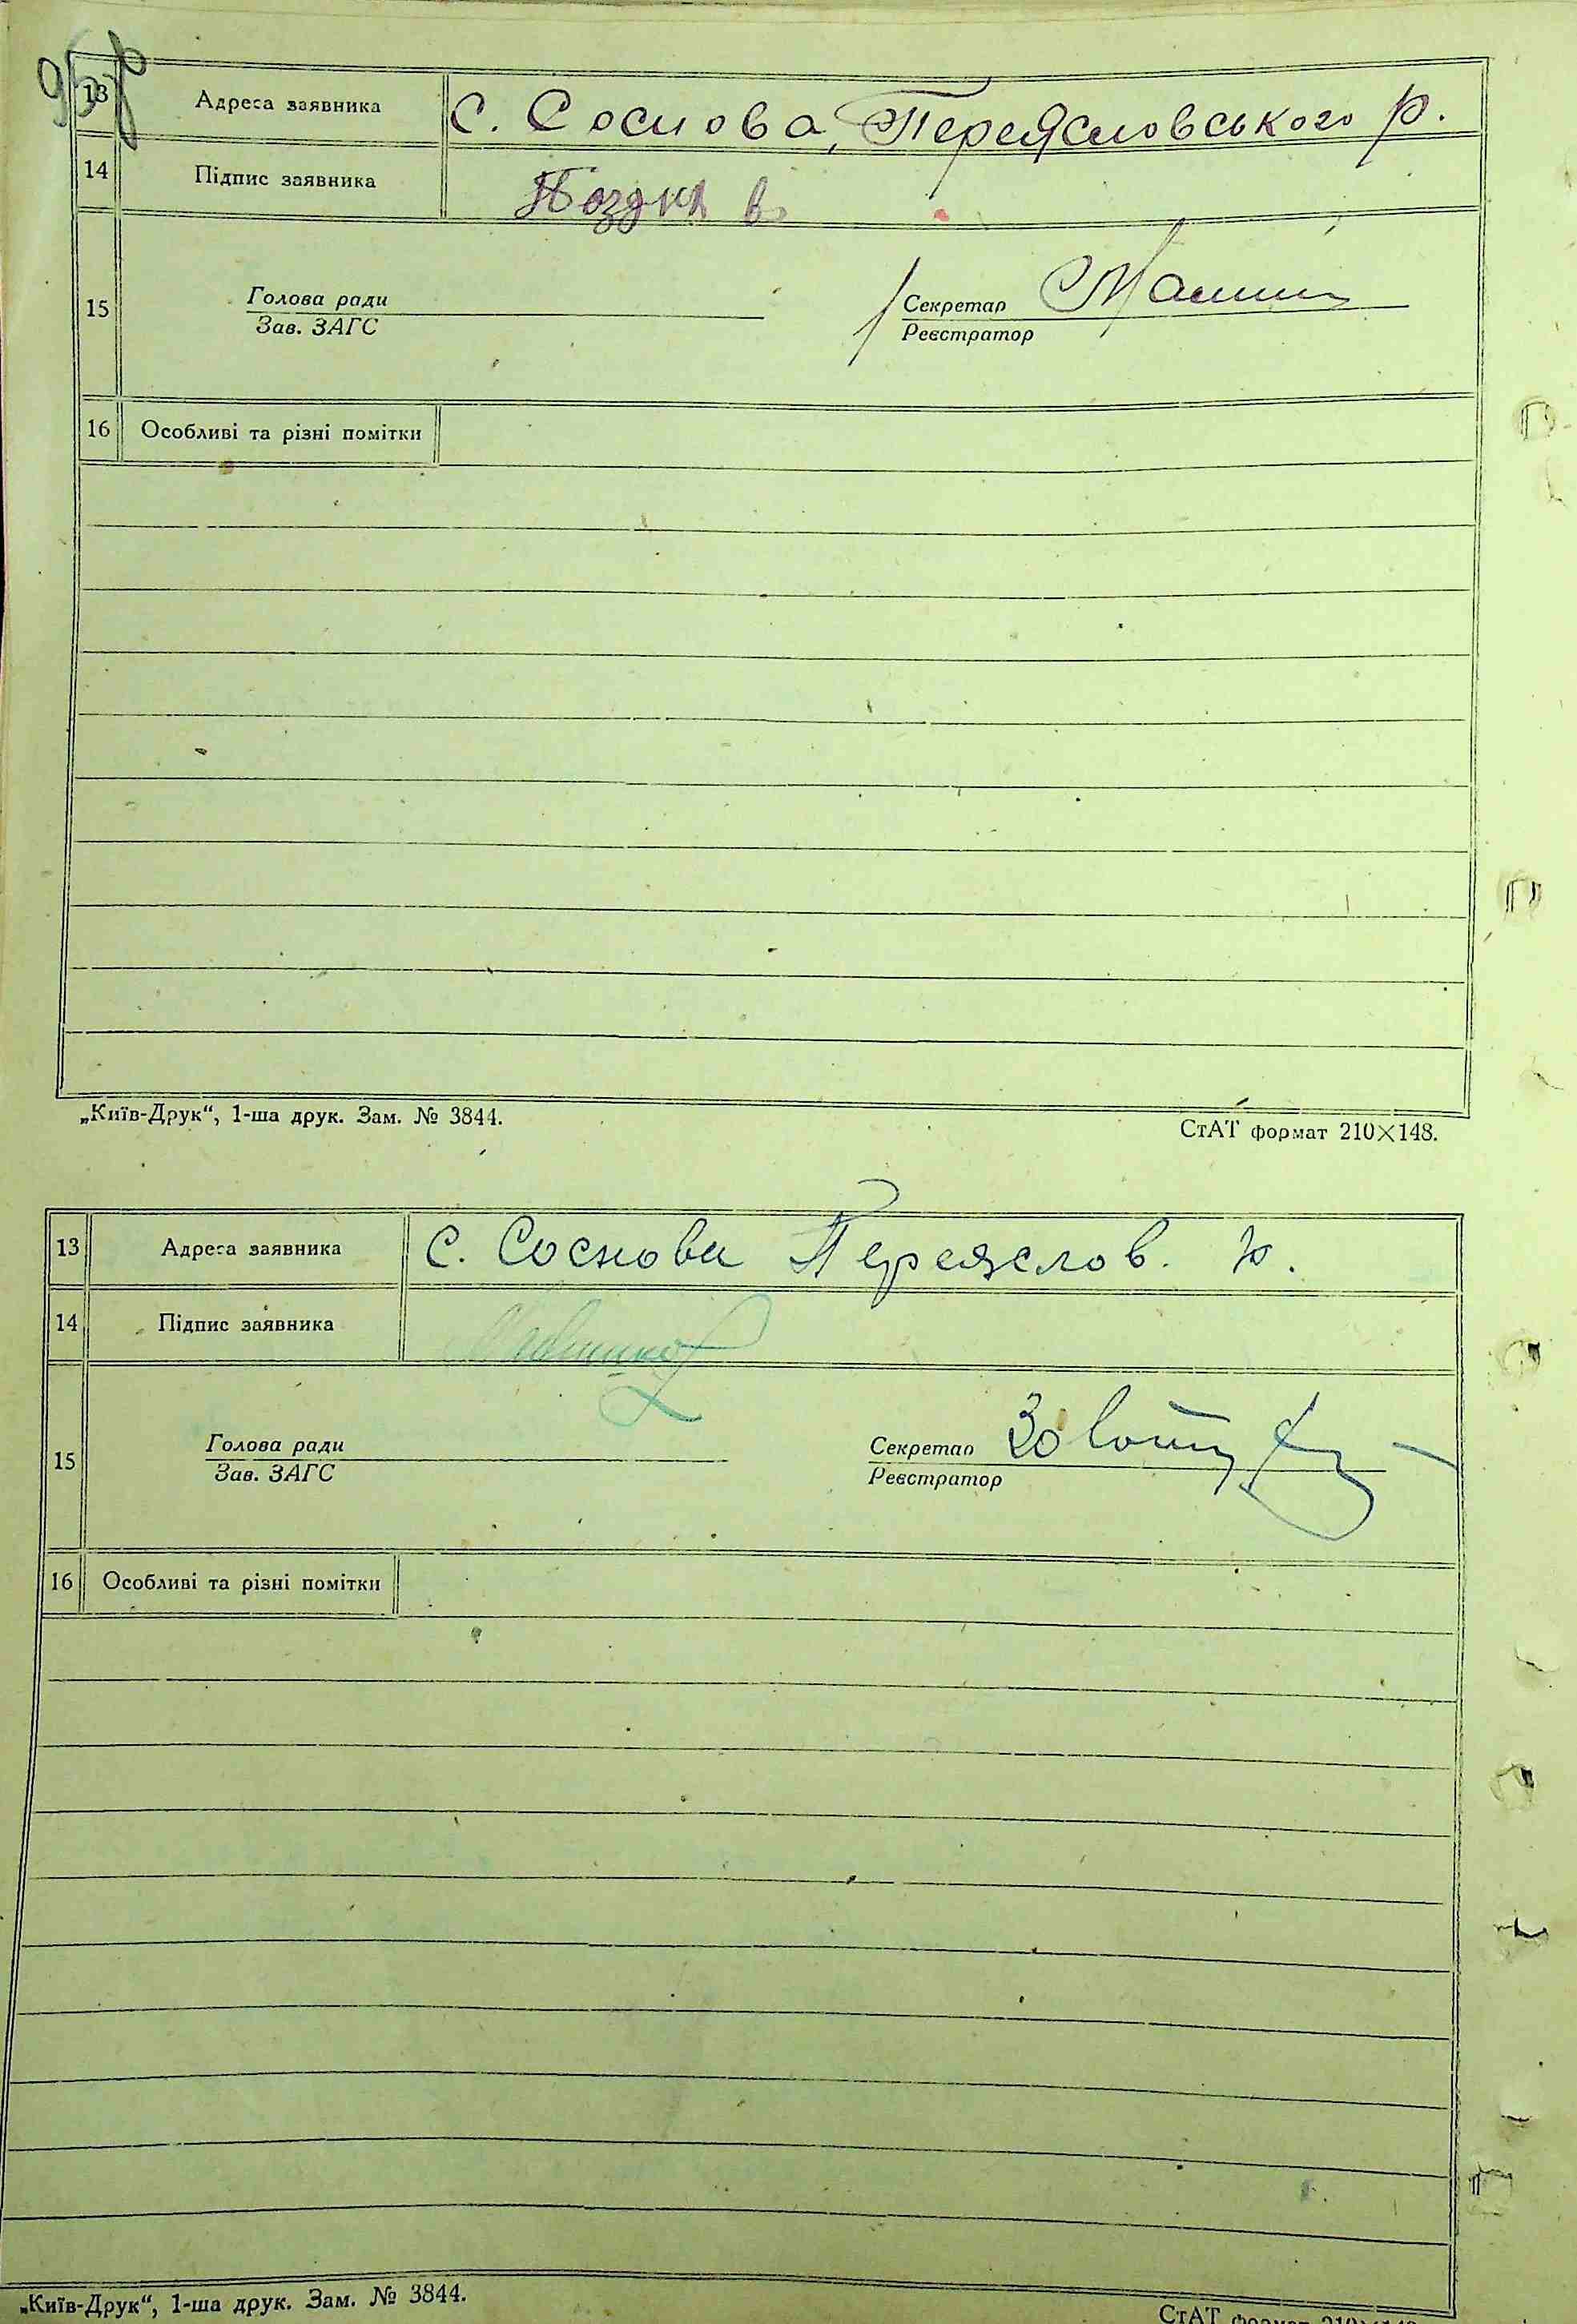 13 Адреса заявника с. Соснова, Переясловського р.
14 Підпис заявника
15 Голова ради Секретар
Зав. ЗАГС Реєстратор
16 Особливі та різні помітки
„Київ-Друк“, 1-ша друк. Зам. № 3844. СтАТ формат 210×148.
13 Адреса заявника с. Соснова Переяслов. р.
14 Підпис заявника
15 Голова ради Секретар
Зав. ЗАГС Реєстратор
16 Особливі та різні помітки
„Київ-Друк“, 1-ша друк. Зам. № 3844. СтАТ формат